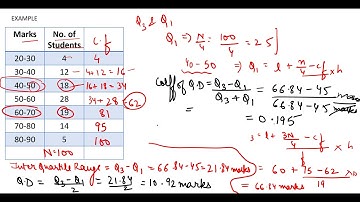 EXAMPLE
Marks No. of Students C.f
20-30 4 4
30-40 12 4+12=16
40-50 18 16+18=34
50-60 28 34+28=62
60-70 19 81
70-80 14 95
80-90 5 100
N=100
Q3 & Q1
Q1 ⇒ N/4 = 100/4 = 25
40-50 ⇒ Q1 = l + n/4 - cf / f × h
Coeff of Q.D = Q3-Q1 / Q3+Q1 = 66.84-45 marks / 66.84+45 marks
= 0.195
= l + 3N/4 - cf / f × h
= 60 + 75-62 / 19 × 10
= 66.84 marks
Inter Quartile Range = Q3-Q1 = 66.84-45 = 21.84 marks
Q.D = Q3-Q1 / 2 = 21.84 / 2 = 10.92 marks